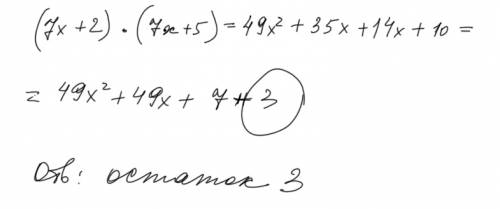 (7x+2)·(7x+5)=49x²+35x+14x+10=
=49x²+49x+7+3
Отв: остаток 3